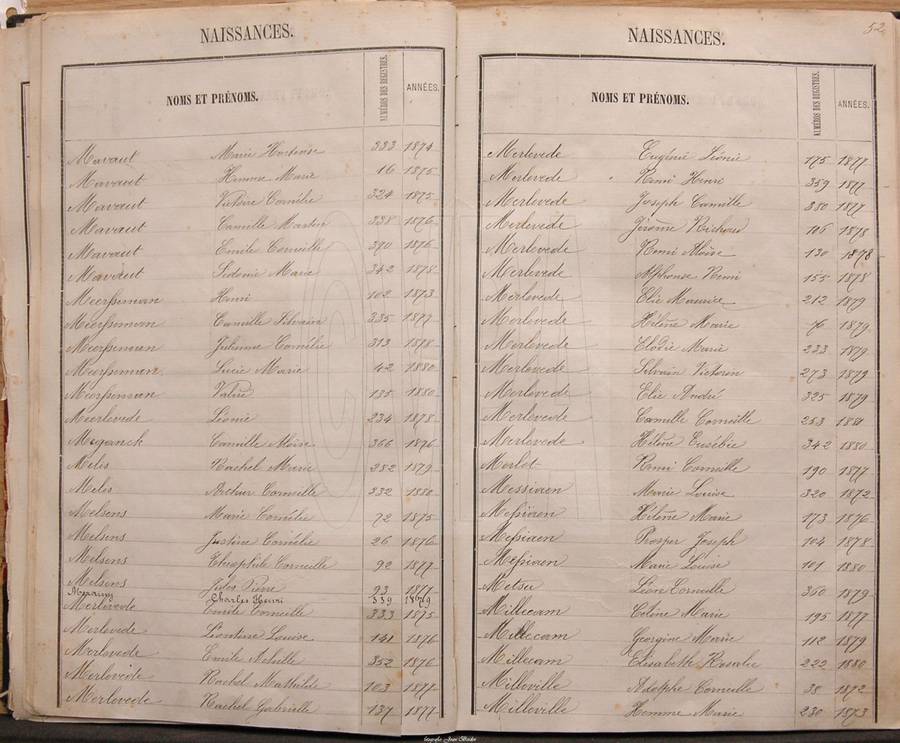 NAISSANCES.
NOMS ET PRÉNOMS. NUMÉROS DES REGISTRES ANNÉES.
Mavaut Marie Hortense 333 1874
Mavaut Hemma Marie 16 1875
Mavaut Victoire Cornélie 324 1875
Mavaut Camille Martin 338 1876
Mavaut Emile Corneille 370 1876
Mavaut Sidonie Marie 342 1878
Meersseman Henri 102 1873
Meersseman Camille Silvain 335 1877
Meersseman Julienne Cornélie 313 1878
Meersseman Lucie Marie 42 1880
Meersseman 135 1880
Meerlevede Léonie 234 1878
Meganck Camille Aloïse 366 1876
Melis Rachel Marie 282 1879
Melis Arthur Corneille 332 1880
Melsens Marie Cornélie 72 1875
Melsens Justine Cornélie 26 1876
Melsens Théophile Corneille 92 1877
Melsens Jules Pierre 93 1877
Charles Henri 339 1869
Merlevede Emile Corneille 333 1875
Merlevede Léontine Louise 141 1876
Merlevede Emile Achille 352 1876
Merlevede Rachel Mathilde 103 1877
Merlevede Rachel Gabrielle 137 1877
52
NAISSANCES.
NOMS ET PRÉNOMS. NUMÉROS DES REGISTRES ANNÉES.
Merlevede Eugénie Léonie 175 1877
Merlevede Remi Henri 359 1877
Merlevede Joseph Camille 380 1877
Merlevede Jérôme Richard 116 1878
Merlevede Remi Aloïse 130 1878
Merlevede Alphonse Remi 155 1878
Merlevede Elie Maurice 212 1879
Merlevede Hélène Marie 76 1879
Merlevede Elodie Marie 233 1879
Merlevede Silvain Victorin 273 1879
Merlevede Elie André 325 1879
Merlevede Camille Corneille 253 1880
Merlevede Hélène Eusébie 342 1880
Merlot Remi Corneille 190 1877
Messiaen Marie Louise 320 1872
Messiaen Hélène Marie 173 1876
Messiaen Prosper Joseph 104 1878
Messiaen Marie Louise 101 1880
Metsu Léon Corneille 350 1879
Millecam Céline Marie 195 1877
Millecam Georgine Marie 112 1879
Millecam Elisabeth Rosalie 222 1880
Milleville Adolphe Corneille 38 1872
Milleville Hemma Marie 230 1873